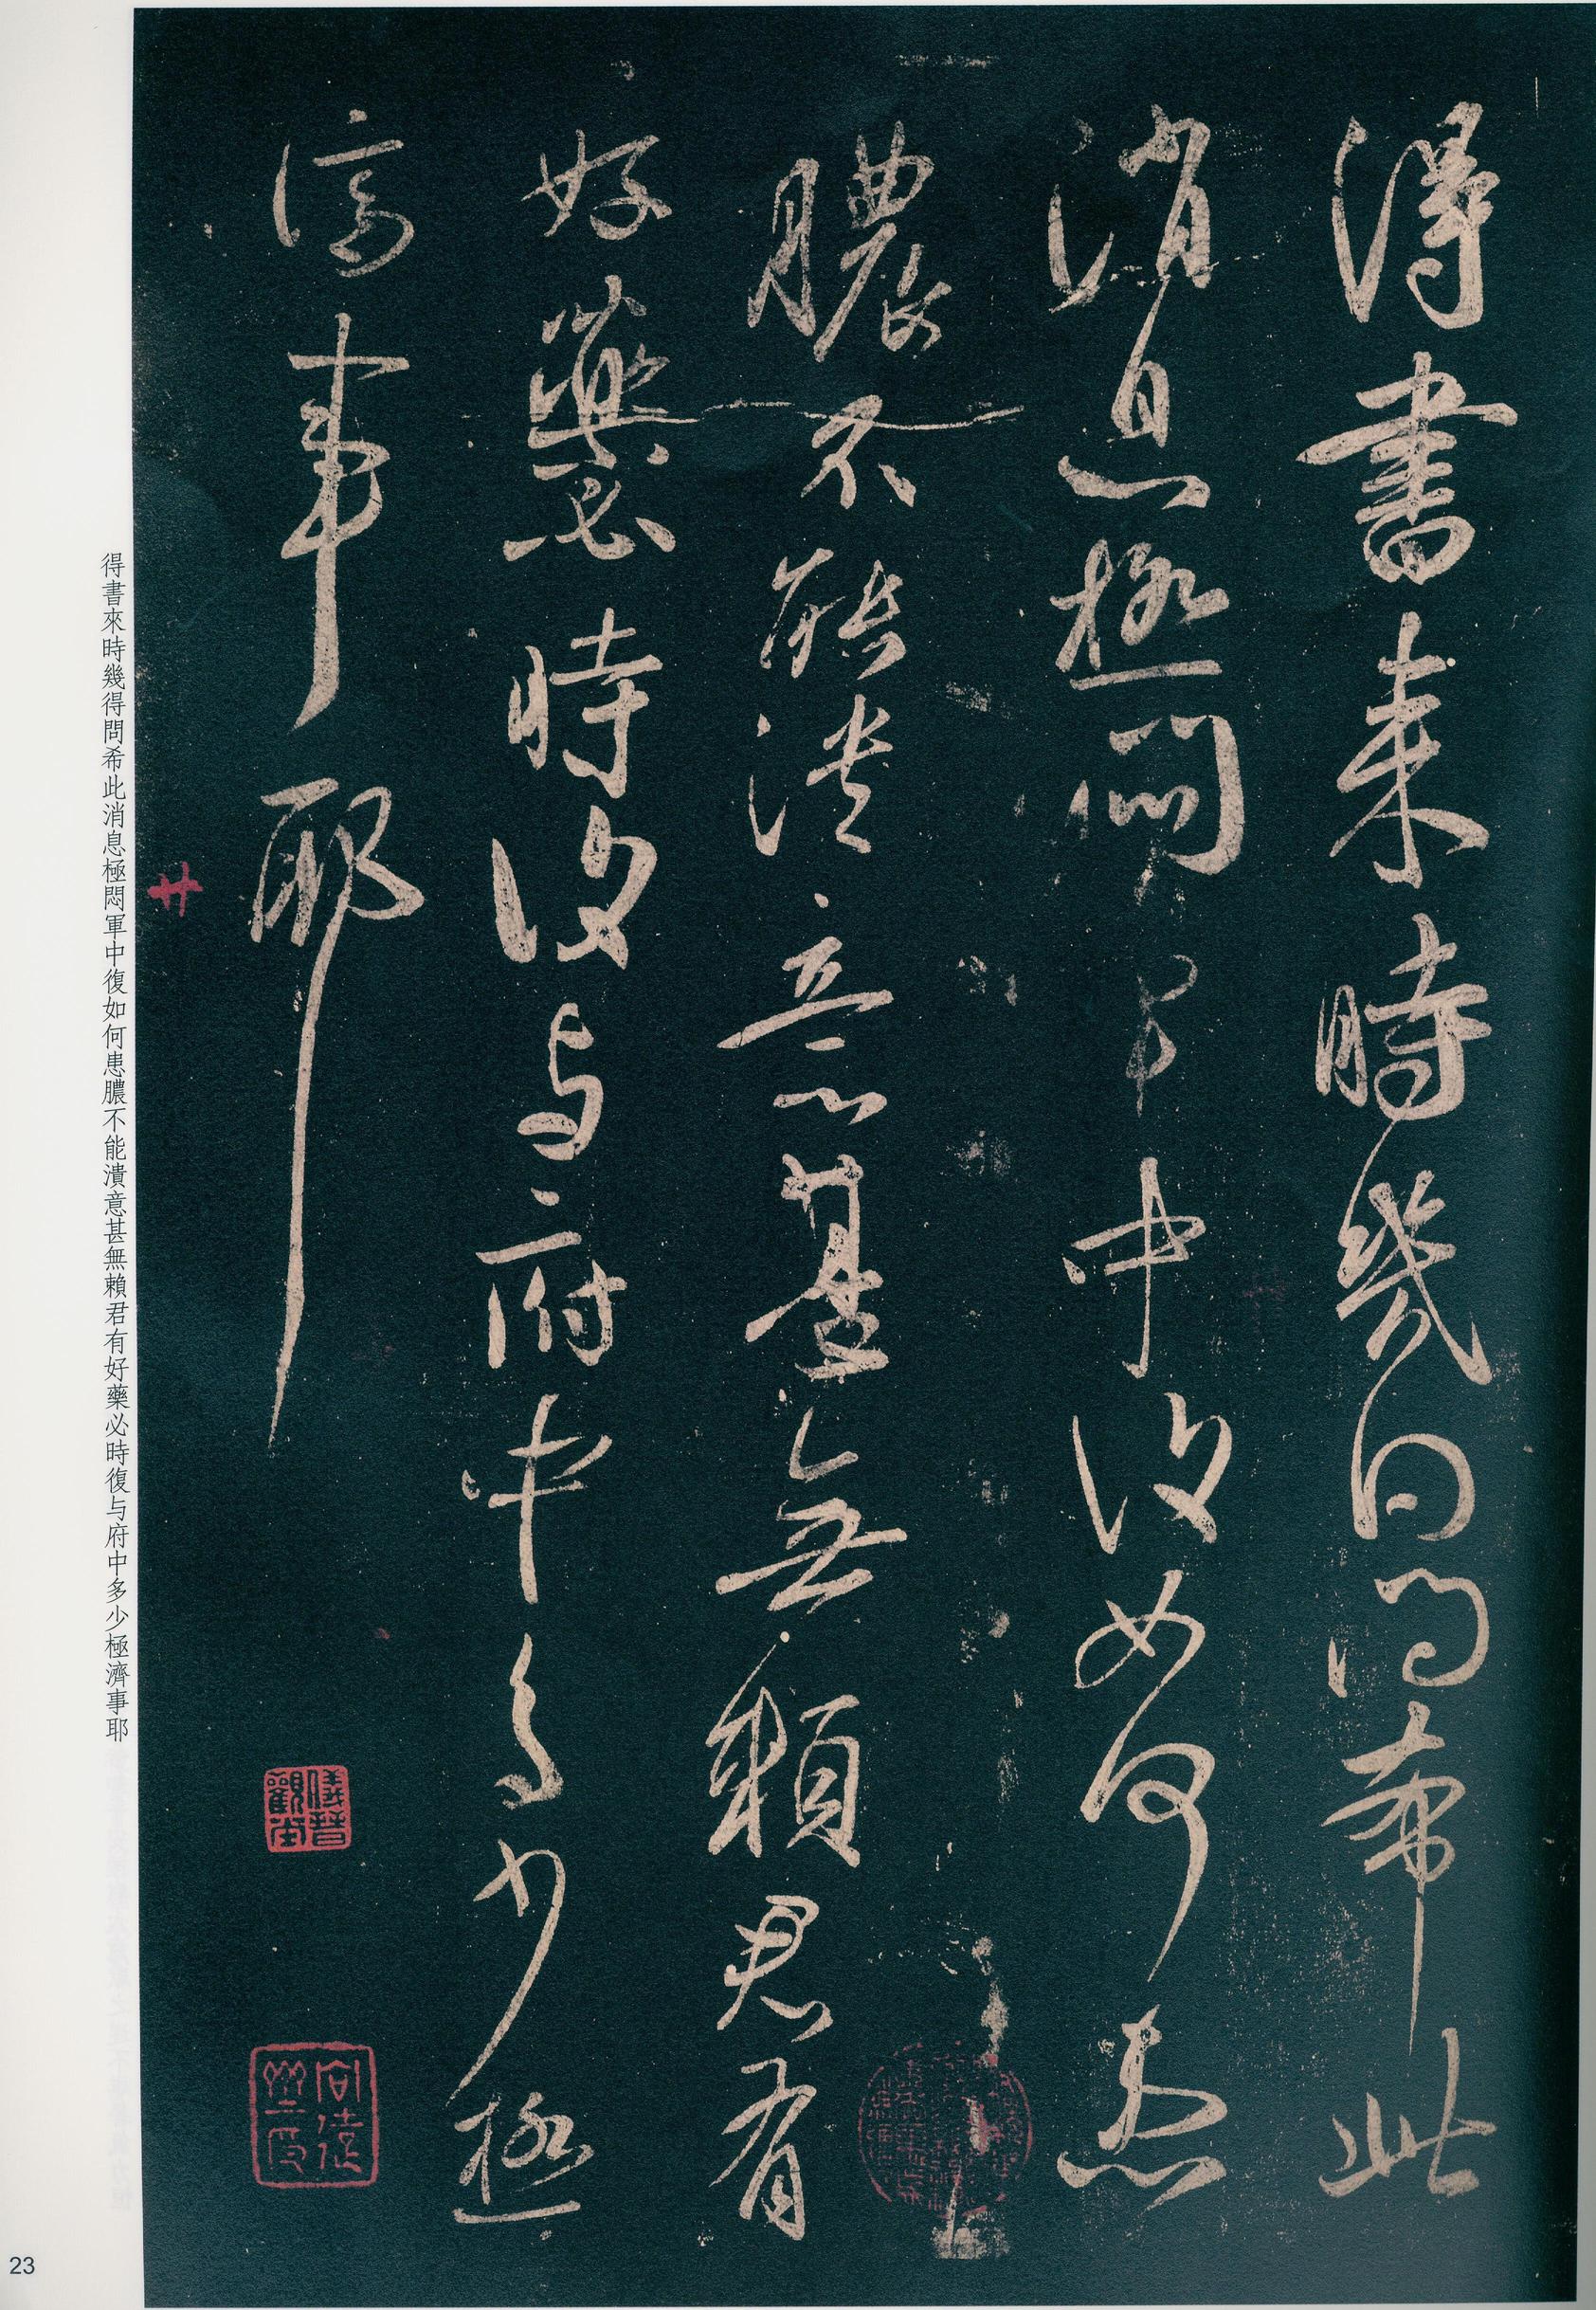 得書來時幾日問希此
消息極悶軍中復如何患
膿不能潰意甚無賴君有
好藥必時復与府中多少極
濟事耶
得書來時幾得問希此消息極悶軍中復如何患膿不能潰意甚無賴君有好藥必時復与府中多少極濟事耶
23